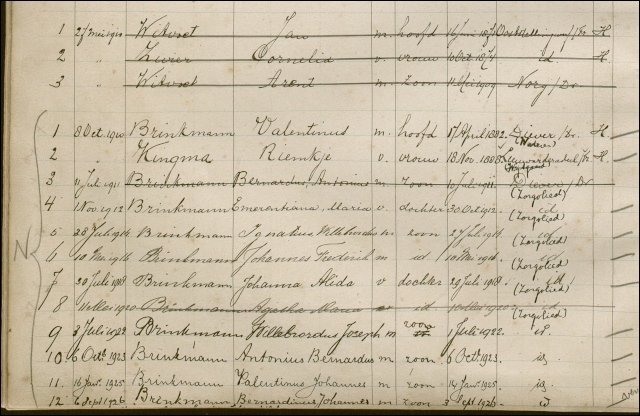 1 27 Mei 1910 Witvoet Jan m. hoofd 16 Juni H.
2 " Zurer Cornelia v. vrouw 10 Oct. 1874 id. H.
3 " Witvoet Arent m. zoon 1909 Norg / Dr.
1 8 Oct. 1910 Brinkmann Valentinus m. hoofd 17 April 1882. Diever / Dr. H.
(Wateren)
2 Kingma Riemkje v. vrouw 18 Nov. 1888 H.
3 11 Juli 1911 Brinkmann Bernardus, Antonius m zoon Juli 1911. Diever / Dr
(Zorgvlied)
4 Nov. 1912 Brinkmann Emerentiana, Maria v. dochter 30 Oct. 1912. id
(Zorgvlied)
5 28 Juli 1914 Brinkmann Ignatius Willebrordus m zoon 27 Juli 1914. id
(Zorgvlied)
6 10 Mei 1916 Brinkmann Johannes Frederik m id 10 Mei 1916. id
(Zorgvlied)
7 20 Juli 1918 Brinkmann Johanna Alida v dochter 20 Juli 1918. id
(Zorgvlied)
8 1920 Brinkmann Agatha Maria v id 1920 id
(Zorgvlied)
9 3 Juli 1922 Brinkmann Willebrordus Joseph m zoon 1 Juli 1922. id.
10 6 Oct. 1923 Brinkmann Antonius Bernardus m zoon 6 Oct. 1923. id
11. 16 Jan. 1925 Brinkmann Valentinus Johannes m zoon 14 Jan. 1925. id
12 6 Sept 1926 Brinkmann Bernardinus Johannes m zoon 3 Sept. 1926 id
N